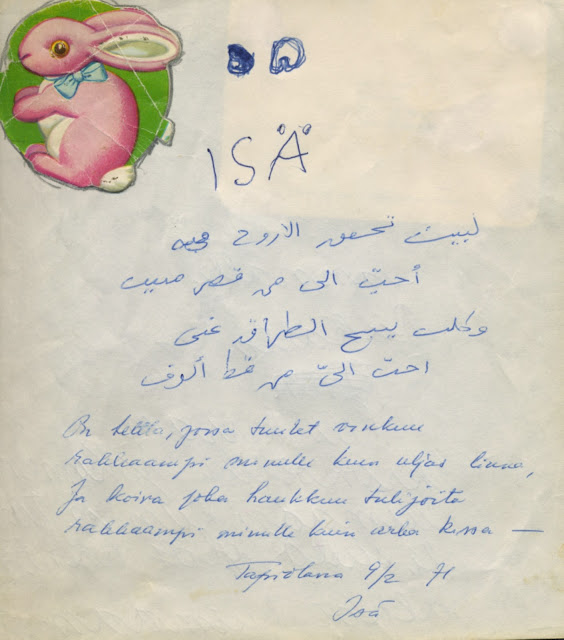 ISÄ
لبيت تخفق الارواح فيه
أحبّ الى من قصر منيف
وكلب ينبح الطراق عنى
احبّ الىّ من قط ألوف
On teltta, jossa tuulet vinkuu
rakkaampi minulle kuin uljas linna,
Ja koira joka haukkuu tulijoita
rakkaampi minulle kuin arka kissa —
9/2 71
Isä